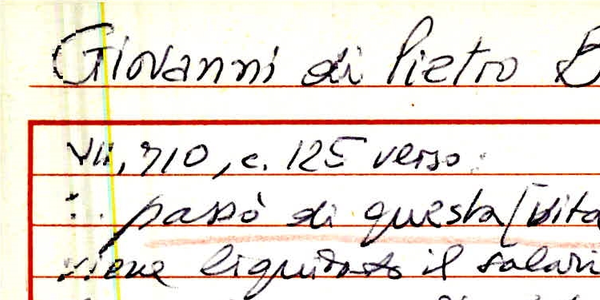 Giovanni di Pietro B
VII, 710, c. 125 verso
: . passò di questa [vita
viene liquidato il salari